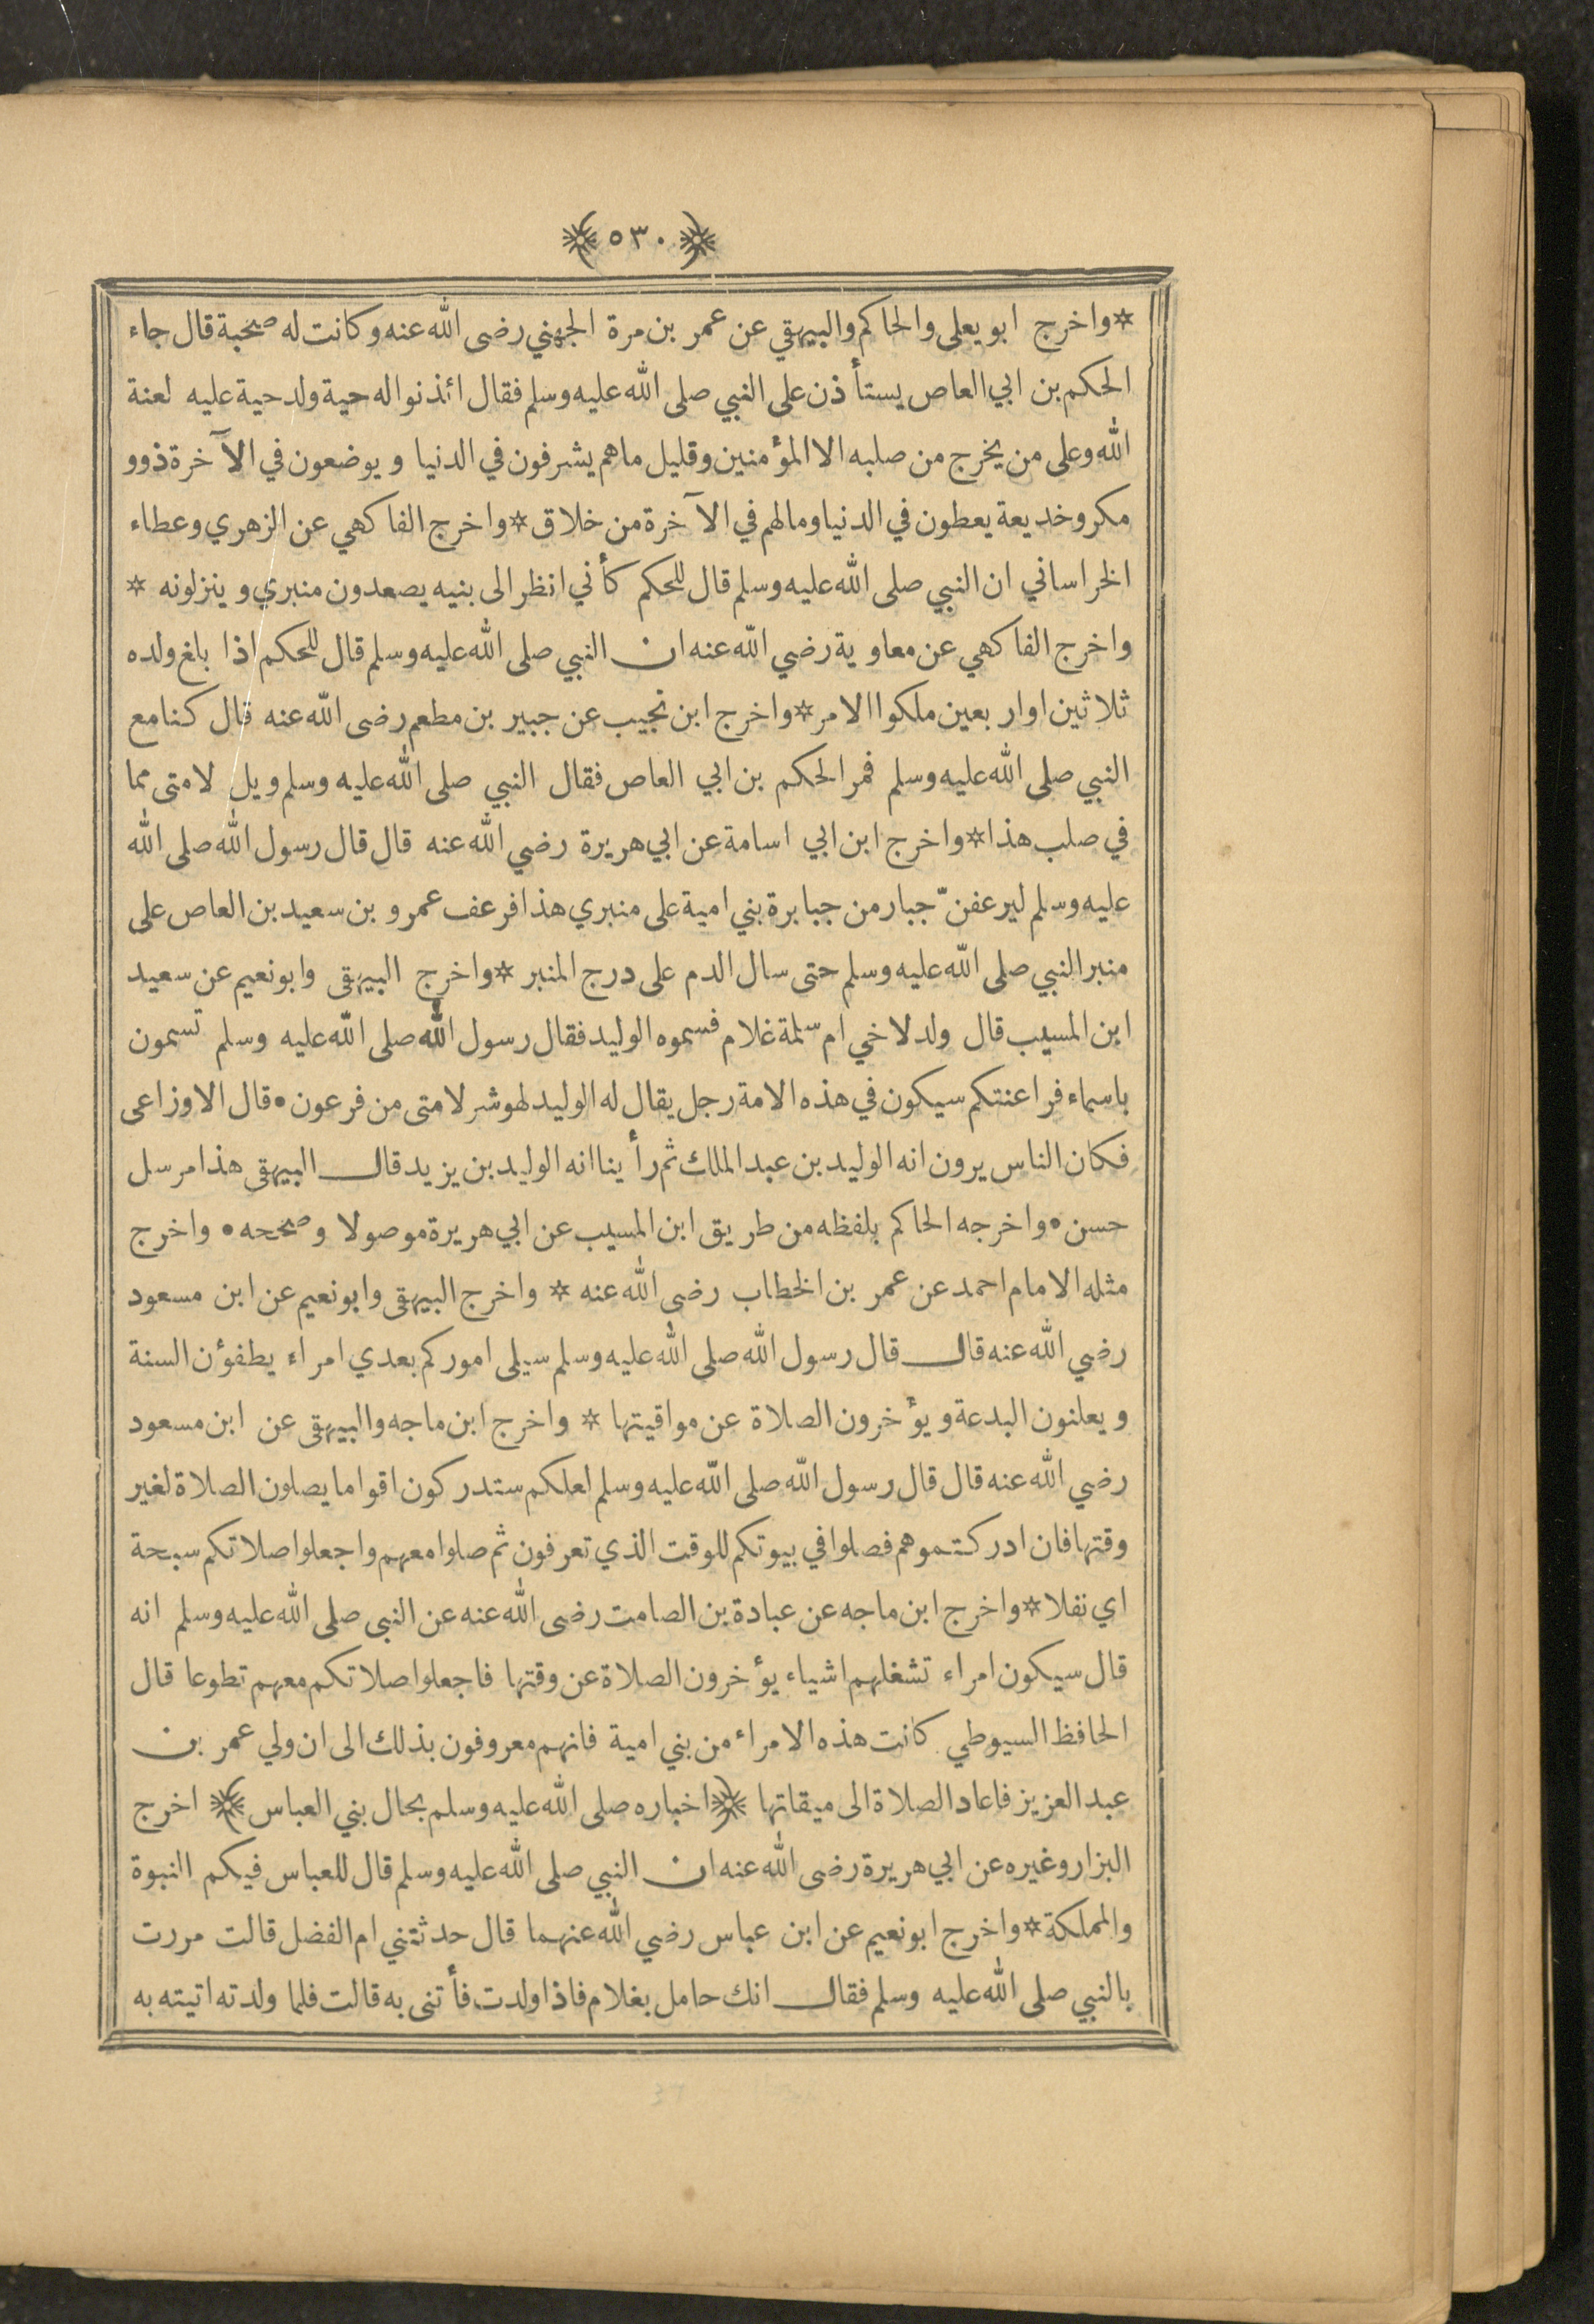 ﴿٥٣٠﴾
*واخرج ابو يعلى والحاكم والبيهقي عن عمر بن مرة الجهني رضى الله عنه وكانت له صحبة قال جاء
الحكم بن ابي العاص يستأذن على النبي صلى الله عليه وسلم فقال ائذنوا له حية ولد حية عليه لعنة
الله وعلى من يخرج من صلبه الا المؤمنين وقليل ما هم يشرفون في الدنيا ويوضعون في الآخرة ذوو
مكر وخديعة يعطون في الدنيا وما لهم في الآخرة من خلاق * واخرج الفاكهي عن الزهري وعطاء
الخراساني ان النبي صلى الله عليه وسلم قال للحكم كأني انظر الى بنيه يصعدون منبري وينزلونه *
واخرج الفاكهي عن معاوية رضي الله عنه ان النبي صلى الله عليه وسلم قال للحكم اذا بلغ ولده
ثلاثين او اربعين ملكوا الامر * واخرج ابن نجيب عن جبير بن مطعم رضى الله عنه قال كنا مع
النبي صلى الله عليه وسلم فمر الحكم بن ابي العاص فقال النبي صلى الله عليه وسلم ويل لامتى مما
في صلب هذا * واخرج ابن ابي اسامة عن ابي هريرة رضي الله عنه قال قال رسول الله صلى الله
عليه وسلم ليرعفنّ جبار من جبابرة بني امية على منبري هذا فرعف عمرو بن سعيد بن العاص على
منبر النبي صلى الله عليه وسلم حتى سال الدم على درج المنبر * واخرج البيهقى وابونعيم عن سعيد
ابن المسيب قال ولد لاخي ام سلمة غلام فسموه الوليد فقال رسول الله صلى الله عليه وسلم تسمون
باسماء فراعنتكم سيكون في هذه الامة رجل يقال له الوليد لهو شر لامتى من فرعون • قال الاوزاعى
فكان الناس يرون انه الوليد بن عبد الملك ثم رأينا انه الوليد بن يزيد قال البيهقى هذا مرسل
حسن • واخرجه الحاكم بلفظه من طريق ابن المسيب عن ابي هريرة موصولا وصححه • واخرج
مثله الامام احمد عن عمر بن الخطاب رضى الله عنه * واخرج البيهقى وابونعيم عن ابن مسعود
رضي الله عنه قال قال رسول الله صلى الله عليه وسلم سيلى اموركم بعدي امراء يطفؤن السنة
ويعلنون البدعة ويؤخرون الصلاة عن مواقيتها * واخرج ابن ماجه والبيهقى عن ابن مسعود
رضي الله عنه قال قال رسول الله صلى الله عليه وسلم لعلكم ستدركون اقواما يصلون الصلاة لغير
وقتها فان ادركتموهم فصلوا في بيوتكم للوقت الذي تعرفون ثم صلوا معهم واجعلوا صلاتكم سبحة
اي نفلا * واخرج ابن ماجه عن عبادة بن الصامت رضى الله عنه عن النبى صلى الله عليه وسلم انه
قال سيكون امراء تشغلهم اشياء يؤخرون الصلاة عن وقتها فاجعلوا صلاتكم معهم تطوعا قال
الحافظ السيوطي كانت هذه الامراء من بني امية فانهم معروفون بذلك الى ان ولي عمر بن
عبد العزيز فاعاد الصلاة الى ميقاتها ﴿اخباره صلى الله عليه وسلم بحال بني العباس﴾ اخرج
البزار وغيره عن ابي هريرة رضى الله عنه ان النبي صلى الله عليه وسلم قال للعباس فيكم النبوة
والمملكة * واخرج ابونعيم عن ابن عباس رضي الله عنهما قال حدثتني ام الفضل قالت مررت
بالنبي صلى الله عليه وسلم فقال انك حامل بغلام فاذا ولدت فأتنى به قالت فلما ولدته اتيته به